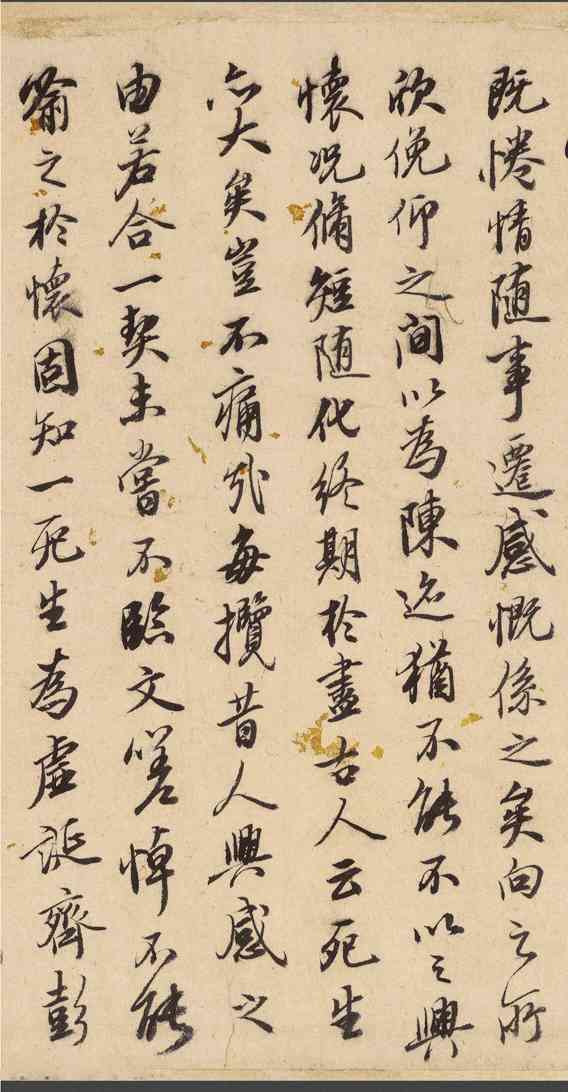 既惓情随事遷感慨係之矣向之所
欣俛仰之間以為陳迹猶不能不以之興
懷況脩短随化終期於盡古人云死生
亦大矣豈不痛哉每攬昔人興感之
由若合一契未嘗不臨文嗟悼不能
喻之於懷固知一死生為虛誕齊彭